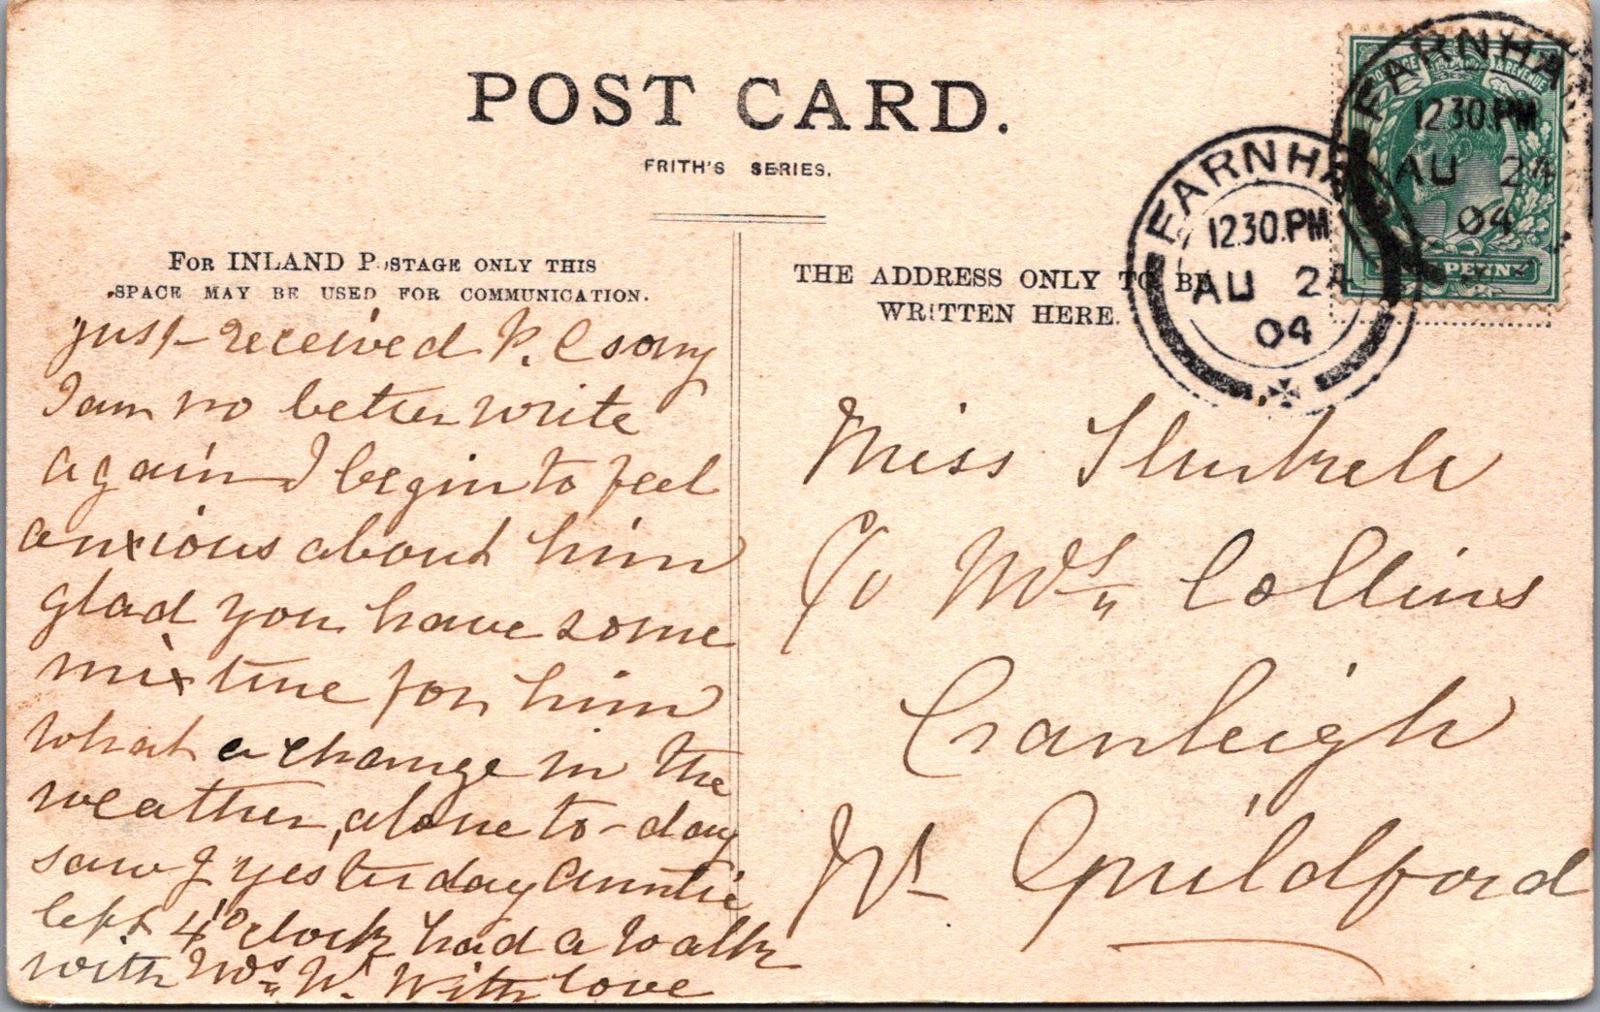 POST CARD.
FRITH'S SERIES.
FOR INLAND POSTAGE ONLY THIS
SPACE MAY BE USED FOR COMMUNICATION.
THE ADDRESS ONLY TO BE
WRITTEN HERE.
FARNHAM
12.30.PM
AU 24
04
FARNHA
12.30.PM
AU 24
04
POSTAGE & REVENUE
PENNY
just received P.C sorry
I am no better write
again I begin to feel
anxious about him
glad you have some
mixture for him
what a change in the
weather, alone to-day
saw J yesterday Auntie
left 4 o'clock had a walk
with Mrs W. With love
Miss
C/o Mrs Collins
Cranleigh
Nr Guildford